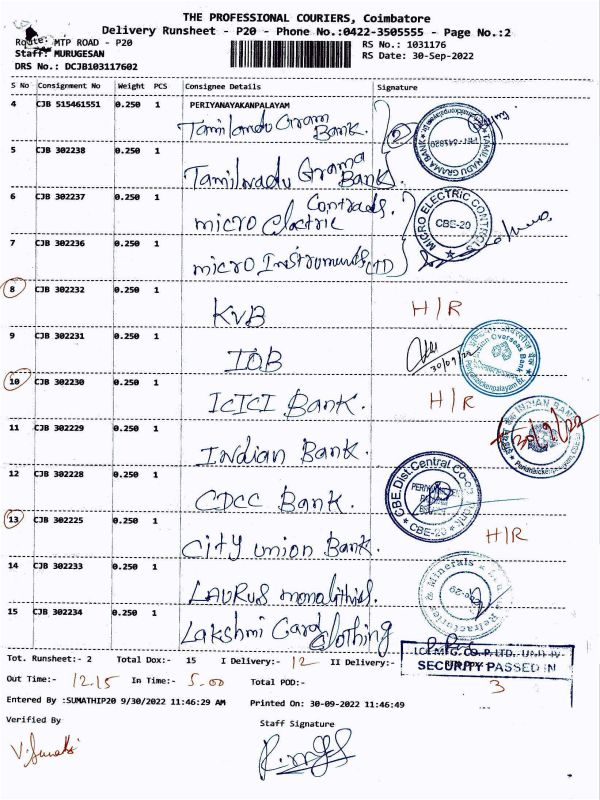 THE PROFESSIONAL COURIERS, Coimbatore
Delivery Runsheet - P20 - Phone No.:0422-3505555 - Page No.:2
Route: MTP ROAD - P20
RS No.: 1031176
Staff: MURUGESAN
RS Date: 30-Sep-2022
DRS No.: DCJB103117602
S No Consignment No Weight PCS Consignee Details Signature
4 CJB 515461551 0.250 1 PERIYANAYAKANPALAYAM
Tamilandu Gram Bank.
2
TAMIL NADU GRAMA BANK
5 CJB 302238 0.250 1
Tamilnadu Grama Bank.
6 CJB 302237 0.250 1
micro Electric Controls.
MICRO ELECTRIC CONTROLS
CBE-20
7 CJB 302236 0.250 1
micro Instruments LTD
8 CJB 302232 0.250 1
KVB H/R
9 CJB 302231 0.250 1
IOB
Indian Overseas Bank
10 CJB 302230 0.250 1
ICICI Bank. H/R
11 CJB 302229 0.250 1
Indian Bank.
INDIAN BANK
12 CJB 302228 0.250 1
CDCC Bank.
CBE.Dist.Central Co-op Bank
CBE-20
13 CJB 302225 0.250 1
City union Bank. H/R
14 CJB 302233 0.250 1
LAURUS monalithics.
Refractories & Minerals
15 CJB 302234 0.250 1
Lakshmi Card Clothing
LCC MFG. CO. P. LTD. UNIT-IV
SECURITY PASSED IN
Tot. Runsheet:- 2 Total Dox:- 15 I Delivery:- 12 II Delivery:- 3
Out Time:- 12.15 In Time:- 5.00 Total POD:-
Entered By :SUMATHIP20 9/30/2022 11:46:29 AM Printed On: 30-09-2022 11:46:49
Verified By Staff Signature
V. Sumathi